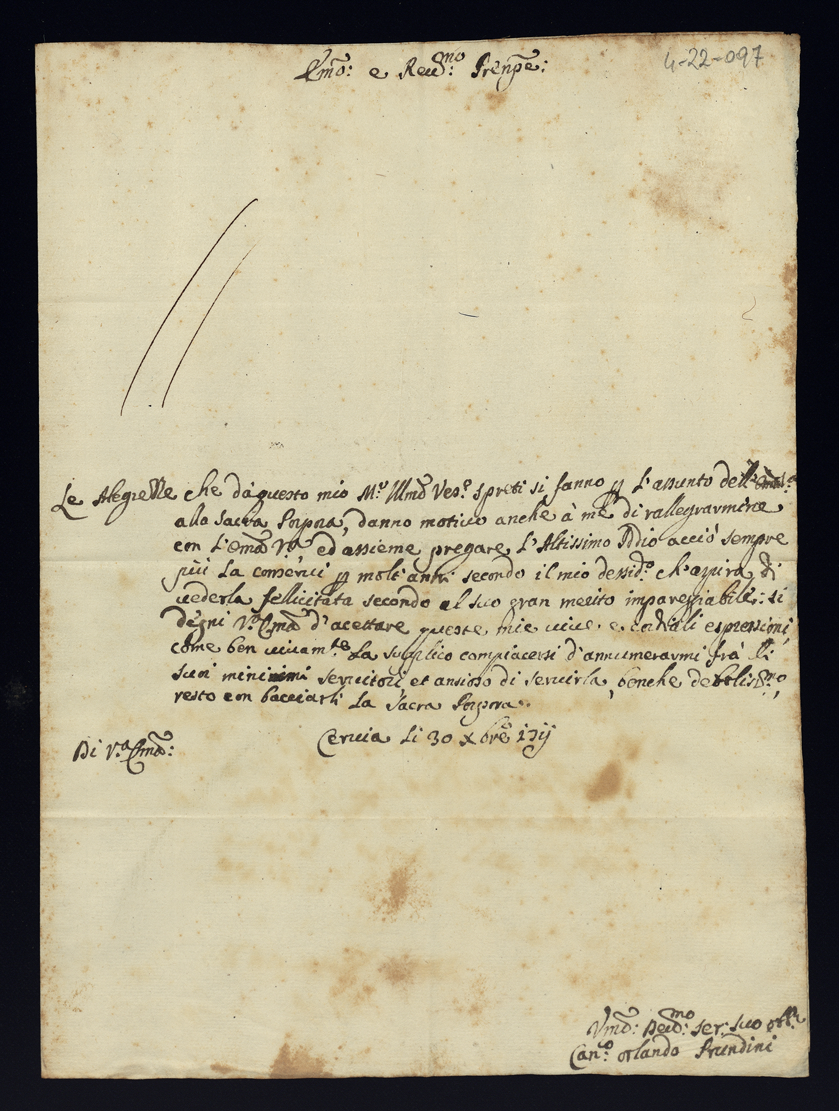 4-22-097
Emo: e Reudmo: Prenpe:
Le Alegrezze che da questo mio Mr. Illmo Vesco. Spreti si fanno p l'assunto dell'
alla Sacra Porpora, danno motiuo anche à me di rallegrarmi
con l'Ema Va ed assieme pregare L'Altissimo Iddio acciò sempre
più La conserui p molti anni secondo il mio desido. ch'aspira di
uederla fellicitata secondo al suo gran merito impareggiabile: si
degni Va. Ema d'acettare queste mie uiue e cordiali espressioni,
come ben uiuamte La suplico compiacersi d'annumerarmi frà li
suoi minimi seruitori et ansioso di seruirla, benche debolissmo,
resto con bacciarli La Sacra Porpora.
Ceruia Li 30 Xbre 17ij
Di V.a Ema:
Vmo: Deuo.mo ser: suo obl.
Can.co Orlando Prundini